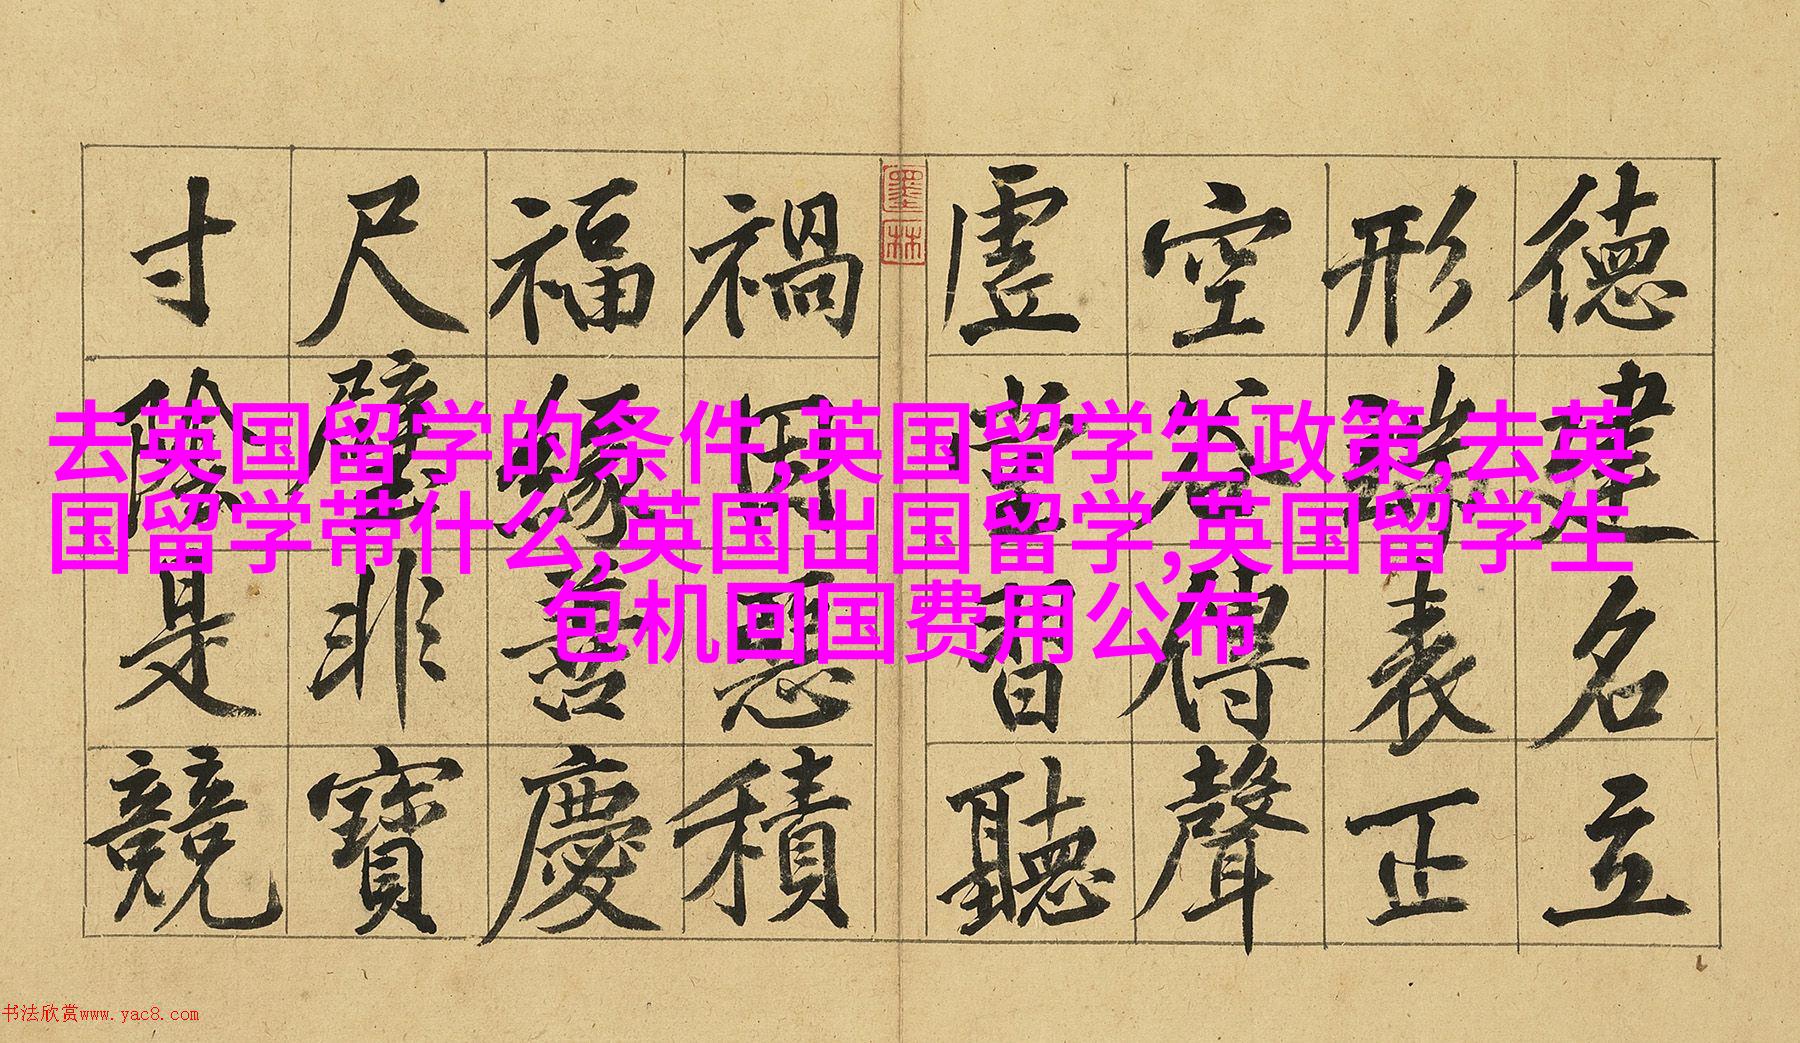 德建名立
形端表正
空谷傳聲
虛堂習聽
墨林
禍因惡積
福緣善慶
尺璧非寶
寸陰是競
去英国留学的条件,英国留学生政策,去英
国留学带什么,英国出国留学,英国留学生
包机回国费用公布
书法欣赏www.yac8.com